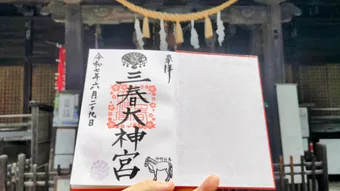 奉拝
三春大神宮
令和七年六月二十九日